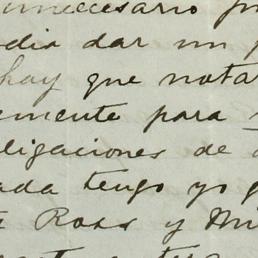 innecesario
odia dar un
hay que notar
emente para
ligaciones de
ada tengo yo
Ross y Mi